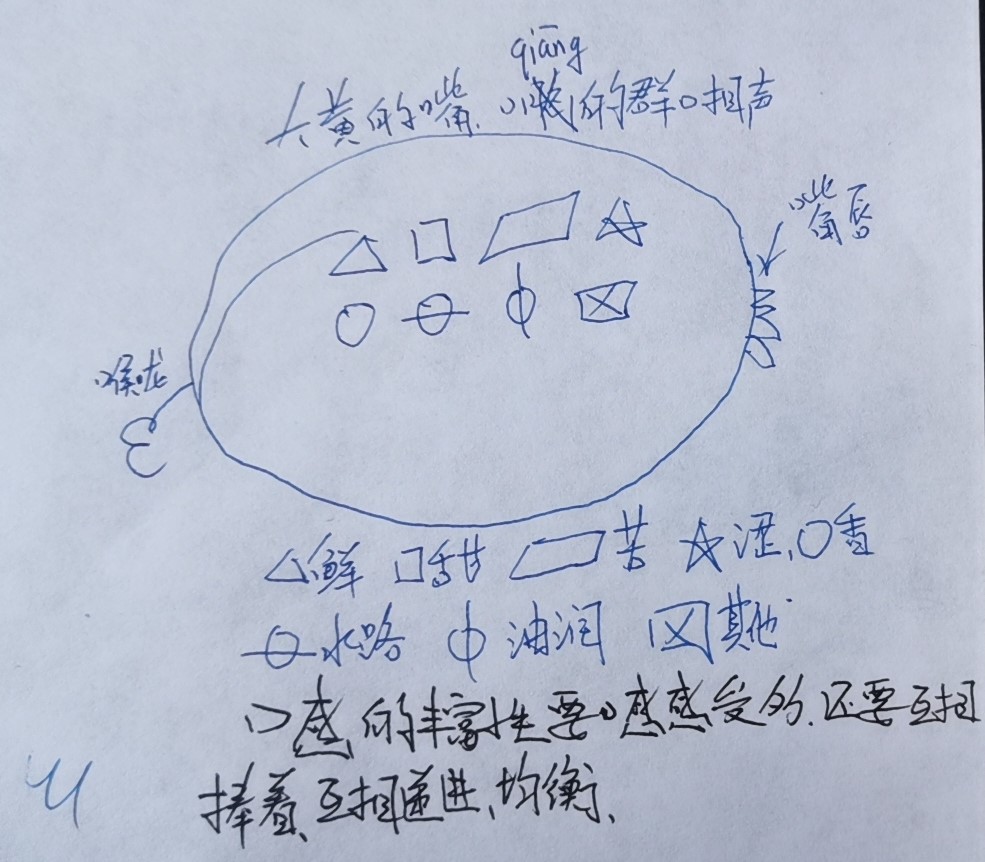 qiāng
大黄的嘴、的群口相声
嘴唇
喉咙
鲜 甜 苦 涩、香
水路 油润 其他
口感的丰富性要口感感受的.还要互相
捧着、互相递进、均衡.